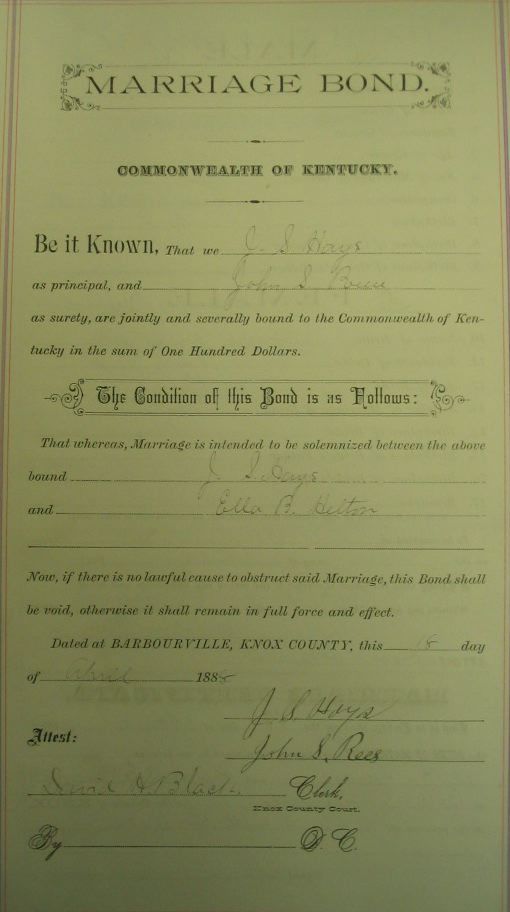 MARRIAGE BOND.
COMMONWEALTH OF KENTUCKY.
Be it Known, That we J. S. Hays
as principal, and John S.
as surety, are jointly and severally bound to the Commonwealth of Ken-
tucky in the sum of One Hundred Dollars.
The Condition of this Bond is as Follows:
That whereas, Marriage is intended to be solemnized between the above
bound J. S. Hays
and Ella B. Helton
Now, if there is no lawful cause to obstruct said Marriage, this Bond shall
be void, otherwise it shall remain in full force and effect.
Dated at BARBOURVILLE, KNOX COUNTY, this 18 day
of April 1888
J. S. Hays
Attest:
John S. Rees
David H. Black Clerk,
Knox County Court.
By D. C.